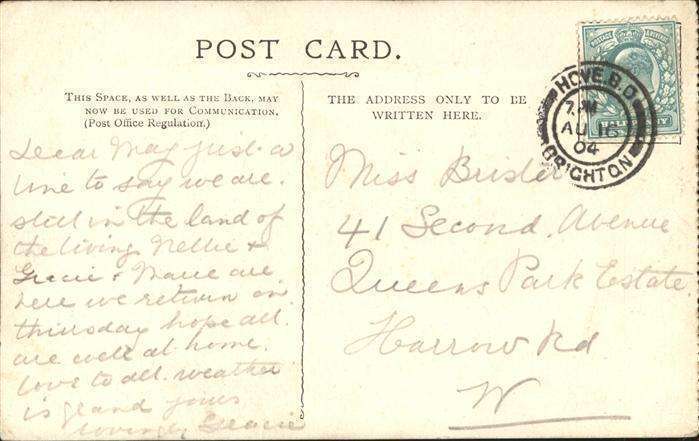 POST CARD.
THIS SPACE, AS WELL AS THE BACK, MAY
NOW BE USED FOR COMMUNICATION.
(Post Office Regulation.)
THE ADDRESS ONLY TO BE
WRITTEN HERE.
HOVE. B.O
AU 16
04
BRIGHTON
HALFPENNY
Dear May just a
line to say we are
still in the land of
the living Nellie &
Gracie & Marie are
here we return on
thursday hope all
are well at home
love to all. weather
is grand yours
lovingly Gracie
Miss
41 Second Avenue
Queens Park Estate
Harrow Rd
W